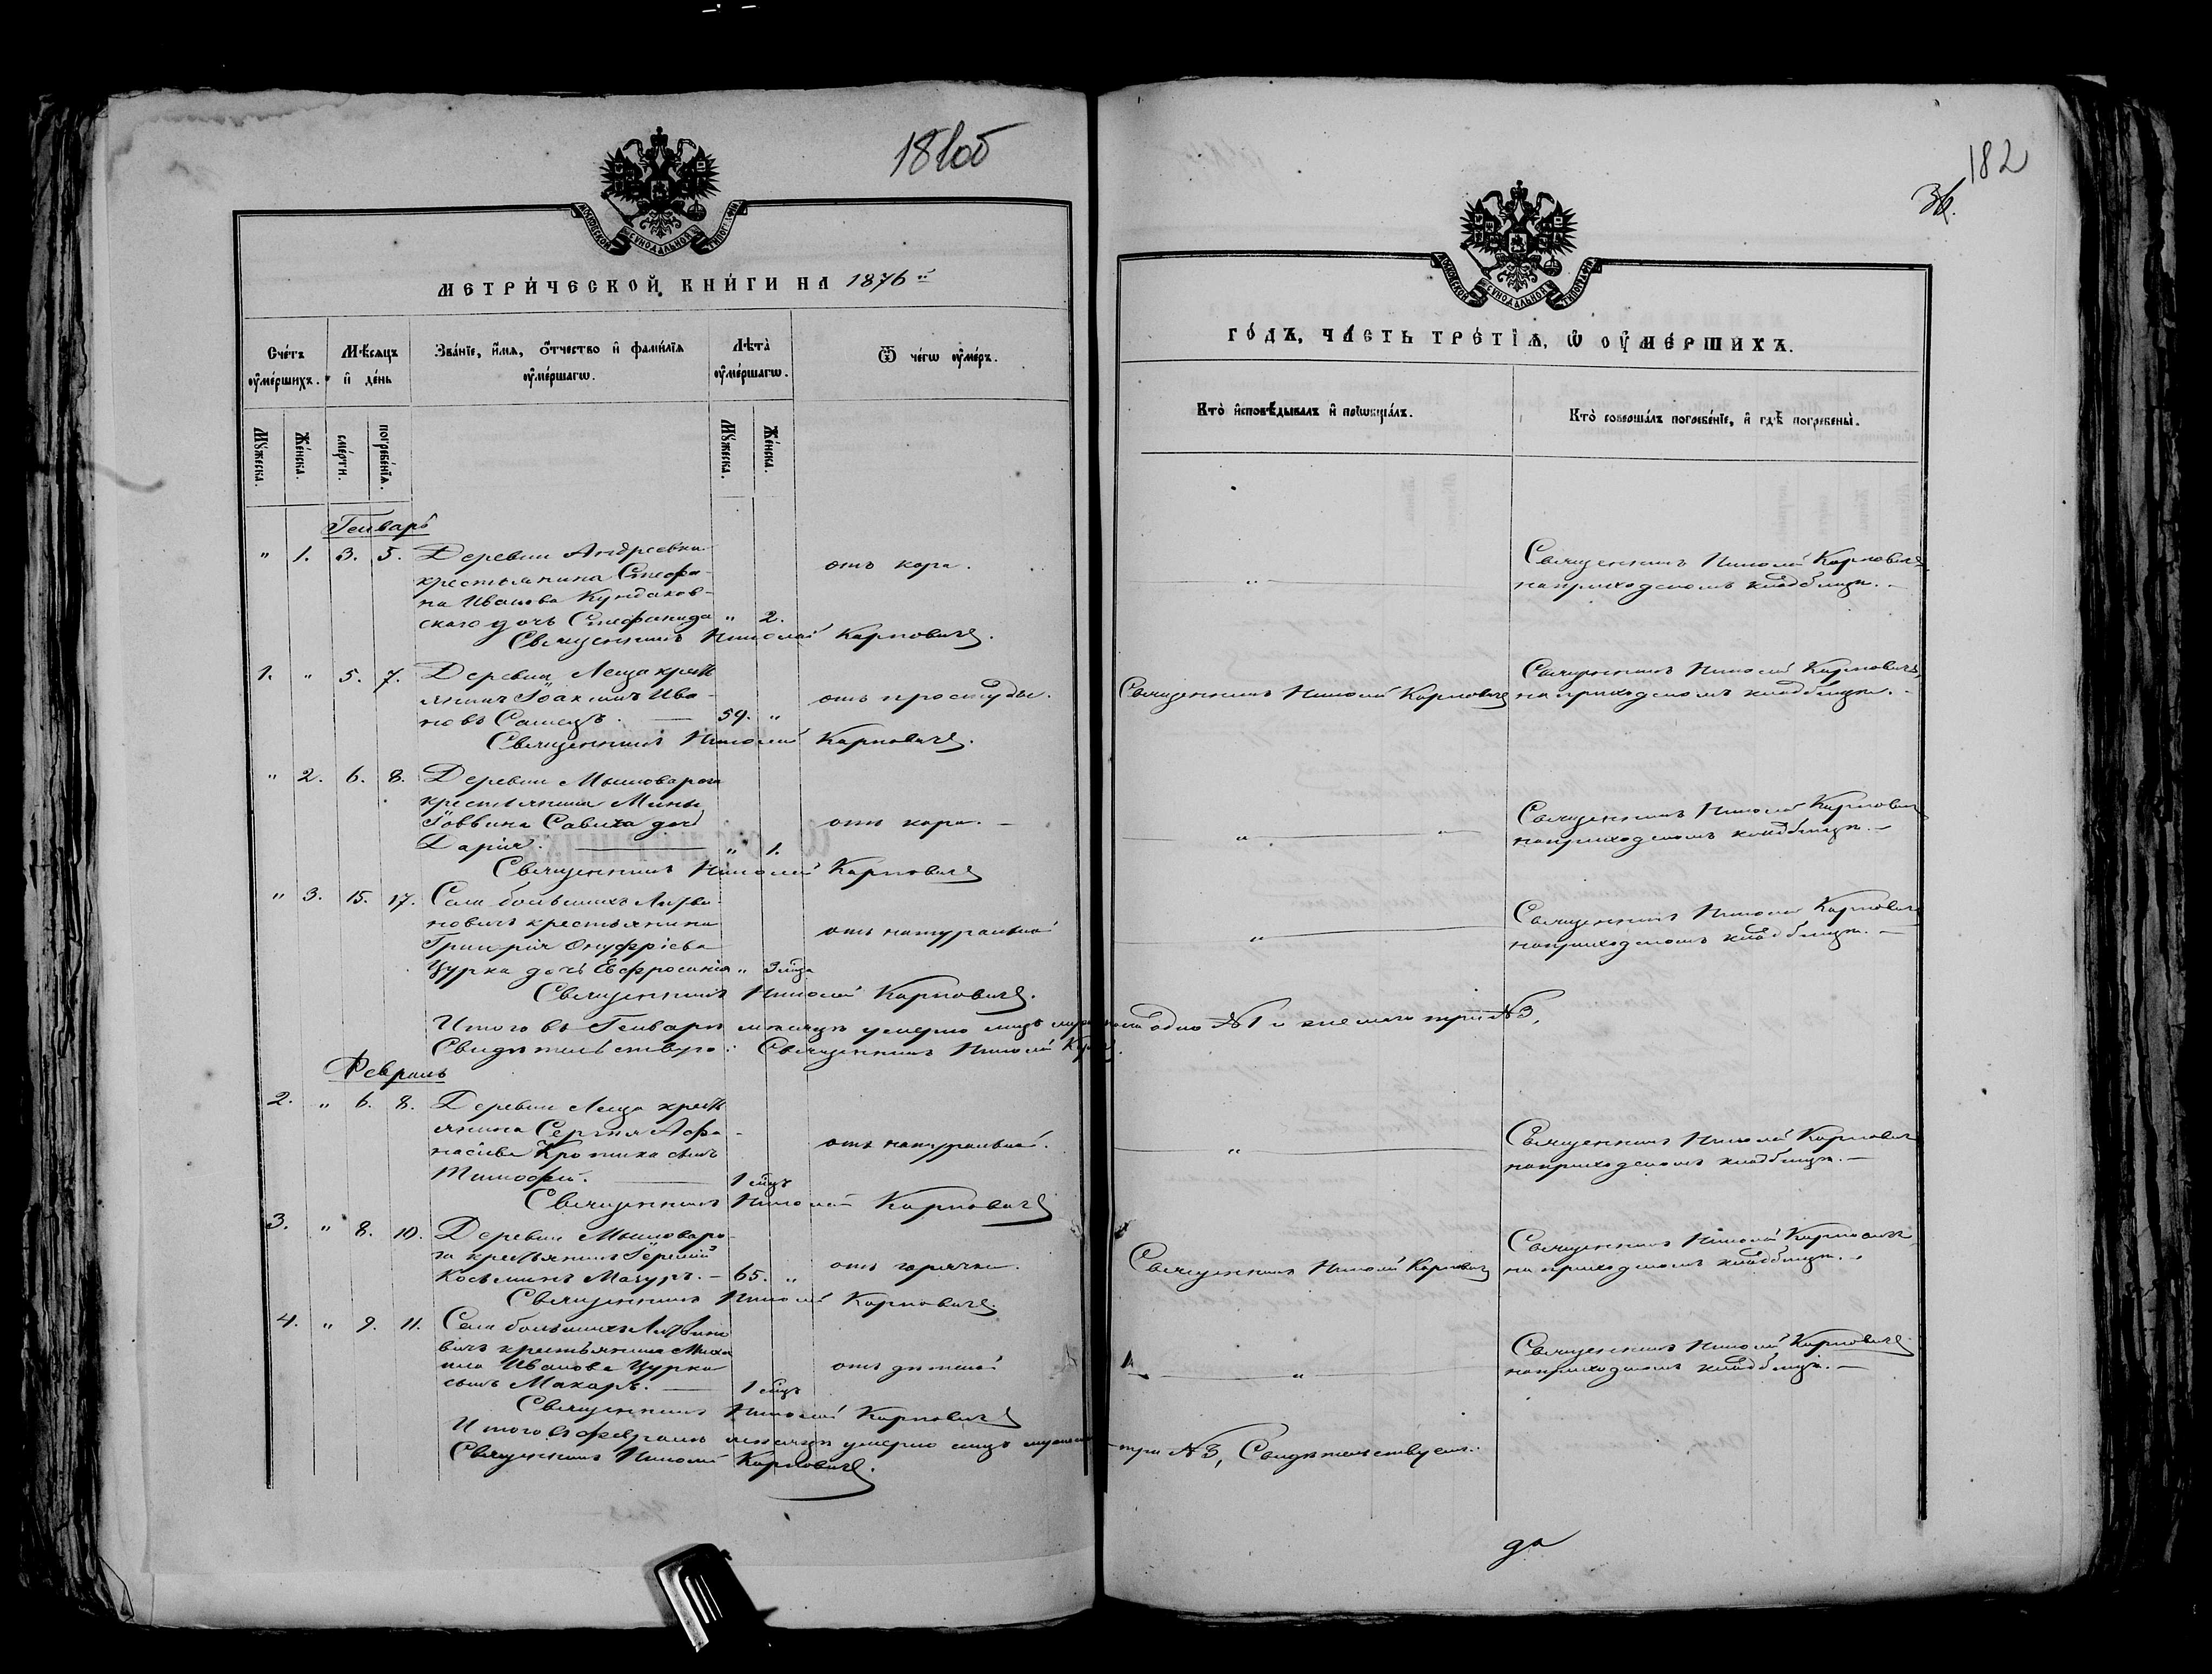 181об
МОСКОВСКОЙ СѴНОДАЛЬНОЙ ТИПОГРАФІИ
МЕТРИ́ЧЕСКОЙ КНИ́ГИ НА 1876й
Сче́тъ ᲂу҆ме́ршихъ.
Мѣ́сѧцъ и҆ де́нь
Зва́нїе, и҆́мѧ, ѻ҆́тчество и҆ фами́лїѧ ᲂу҆ме́ршагѡ.
Лѣ́та ᲂу҆ме́ршагѡ.
Ѿ чегѡ̀ ᲂу҆́меръ.
Мꙋ́жеска.
Же́нска.
сме́рти.
погребе́нїѧ.
Мꙋ́жеска.
Же́нска.
Генварь
" 1. 3. 5. Деревни Андреевки
крестьянина Стефа-
на Иванова Кундаков-
скаго дочь Стефанида " 2.
отъ кора.
Священникъ Николай Карповичъ.
1. " 5. 7. Деревни Леща крест
янинъ Іоакимъ Ива-
новъ Самецъ. — 59. "
отъ простуды.
Священникъ Николай Карповичъ.
" 2. 6. 8. Деревни Мышоварога
крестьянина Мины
Іоввина Савиха дочь
Дарія. — " 1.
отъ кора. —
Священникъ Николай Карповичъ
" 3. 15. 17. Села большихъ Литви-
новичъ крестьянина
Григорія Онуфріева
Цурка дочь Евфросинія " 3 м͠ца
отъ натуральной
Священникъ Николай Карповичъ.
Итого въ Генварѣ мѣсяцѣ умерло лицъ мужеска одно №1 и женскаго три №3,
Свидѣтельствую: Священникъ Николай Карп.
Февраль
2. " 6. 8. Деревни Леща крест
янина Сергія Афа-
насіева Кротика сынъ
Тимофей. — 1 м͠цъ
отъ натуральной.
Священникъ Николай Карповичъ
3. " 8. 10. Деревни Мышоваро-
га крестьянинъ Іеремій
Косьминъ Мачуръ. — 65. "
отъ горячки.
Священникъ Николай Карповичъ.
4. " 9. 11. Села большихъ Литвино
вичъ крестьянина Миха
ила Иванова Цурка
сынъ Макаръ. — 1 м͠цъ
отъ дѣтской
Священникъ Николай Карповичъ
Итого въ февралѣ мѣсяцѣ умерло лицъ мужеска — три №3, Свидѣтельствуемъ.
Священникъ Николай Карповичъ.
182
36.
МОСКОВСКОЙ СѴНОДАЛЬНОЙ ТИПОГРАФІИ
ГО́ДЪ, ЧА́СТЬ ТРЕ́ТЇѦ, Ѡ҆ ОУ҆МЕ́РШИХЪ.
Кто̀ и҆сповѣ́дывалъ и҆ прїѡбща́лъ.
Кто̀ соверша́лъ погребе́нїе, и҆ гдѣ̀ погребены̀.
Священникъ Николай Карповичъ,
на приходскомъ кладбищѣ. —
Священникъ Николай Карповичъ
Священникъ Николай Карповичъ,
на приходскомъ кладбищѣ. —
Священникъ Николай Карповичъ
на приходскомъ кладбищѣ. —
Священникъ Николай Карповичъ
на приходскомъ кладбищѣ. —
Священникъ Николай Карповичъ
на приходскомъ кладбищѣ. —
Священникъ Николай Карповичъ
Священникъ Николай Карповичъ
на приходскомъ кладбищѣ. —
Священникъ Николай Карповичъ
на приходскомъ кладбищѣ. —
да